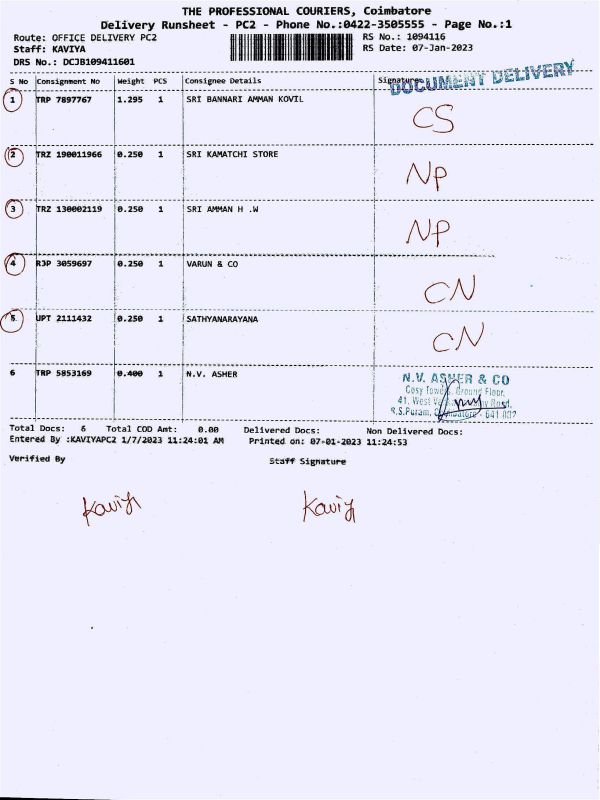 THE PROFESSIONAL COURIERS, Coimbatore
Delivery Runsheet - PC2 - Phone No.:0422-3505555 - Page No.:1
Route: OFFICE DELIVERY PC2 RS No.: 1094116
Staff: KAVIYA RS Date: 07-Jan-2023
DRS No.: DCJB109411601
DOCUMENT DELIVERY
S No Consignment No Weight PCS Consignee Details Signature
1 TRP 7897767 1.295 1 SRI BANNARI AMMAN KOVIL
CS
2 TRZ 190011966 0.250 1 SRI KAMATCHI STORE
NP
3 TRZ 130002119 0.250 1 SRI AMMAN H .W
NP
4 RJP 3059697 0.250 1 VARUN & CO
CN
5 UPT 2111432 0.250 1 SATHYANARAYANA
CN
6 TRP 5853169 0.400 1 N.V. ASHER
N.V. ASHER & CO
Cosy Tower, Ground Floor,
41, West Road,
R.S.Puram, Coimbatore - 641 002
Total Docs: 6 Total COD Amt: 0.00 Delivered Docs: Non Delivered Docs:
Entered By :KAVIYAPC2 1/7/2023 11:24:01 AM Printed on: 07-01-2023 11:24:53
Verified By Staff Signature
Kaviya Kaviya